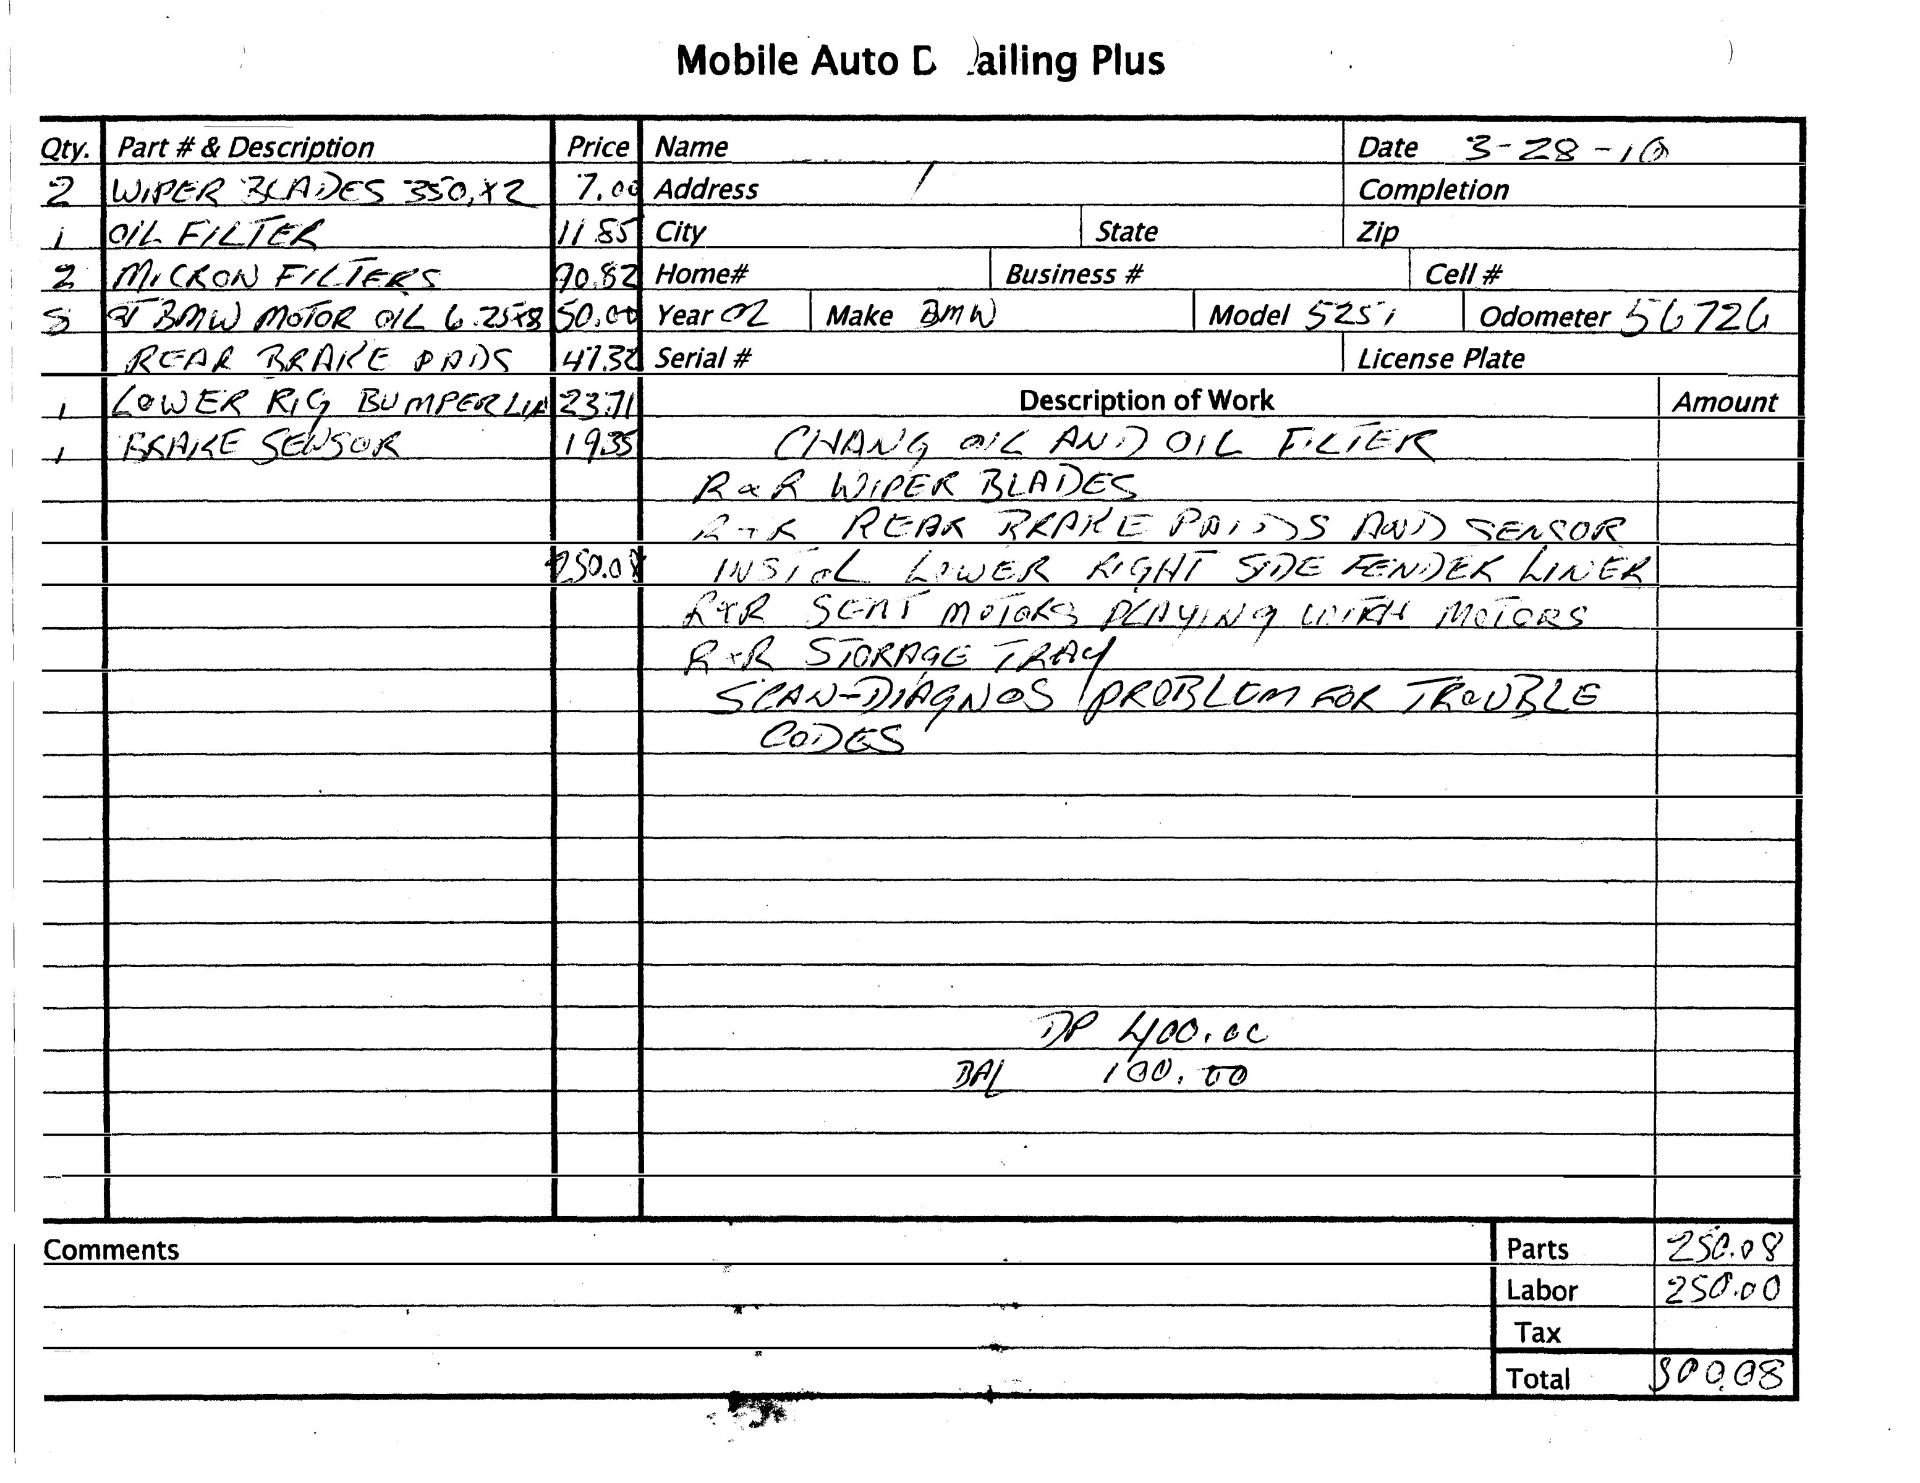 Mobile Auto D ailing Plus
Qty. Part # & Description Price Name Date 3-28-10
2 WIPER BLADES 350,X2 7.00 Address Completion
1 OIL FILTER 11.85 City State Zip
2 MICRON FILTERS 90.82 Home# Business # Cell #
8 QT BMW MOTOR OIL 6.25x8 50.00 Year 02 Make BMW Model 525i Odometer 56726
REAR BRAKE PADS 47.32 Serial # License Plate
1 LOWER RIG BUMPER LIN 23.71 Description of Work Amount
1 BRAKE SENSOR 19.35 CHANG OIL AND OIL FILTER
R & R WIPER BLADES
R + R REAR BRAKE PADDS AND SENSOR
250.08 INSTOL LOWER RIGHT SIDE FENDER LINER
R+R SEAT MOTORS PLAYING WITH MOTORS
R+R STORAGE TRAY
SCAN-DIAGNOS PROBLEM FOR TROUBLE
CODES
DP 400.00
BAL 100.00
Comments Parts 250.08
Labor 250.00
Tax
Total 500.08